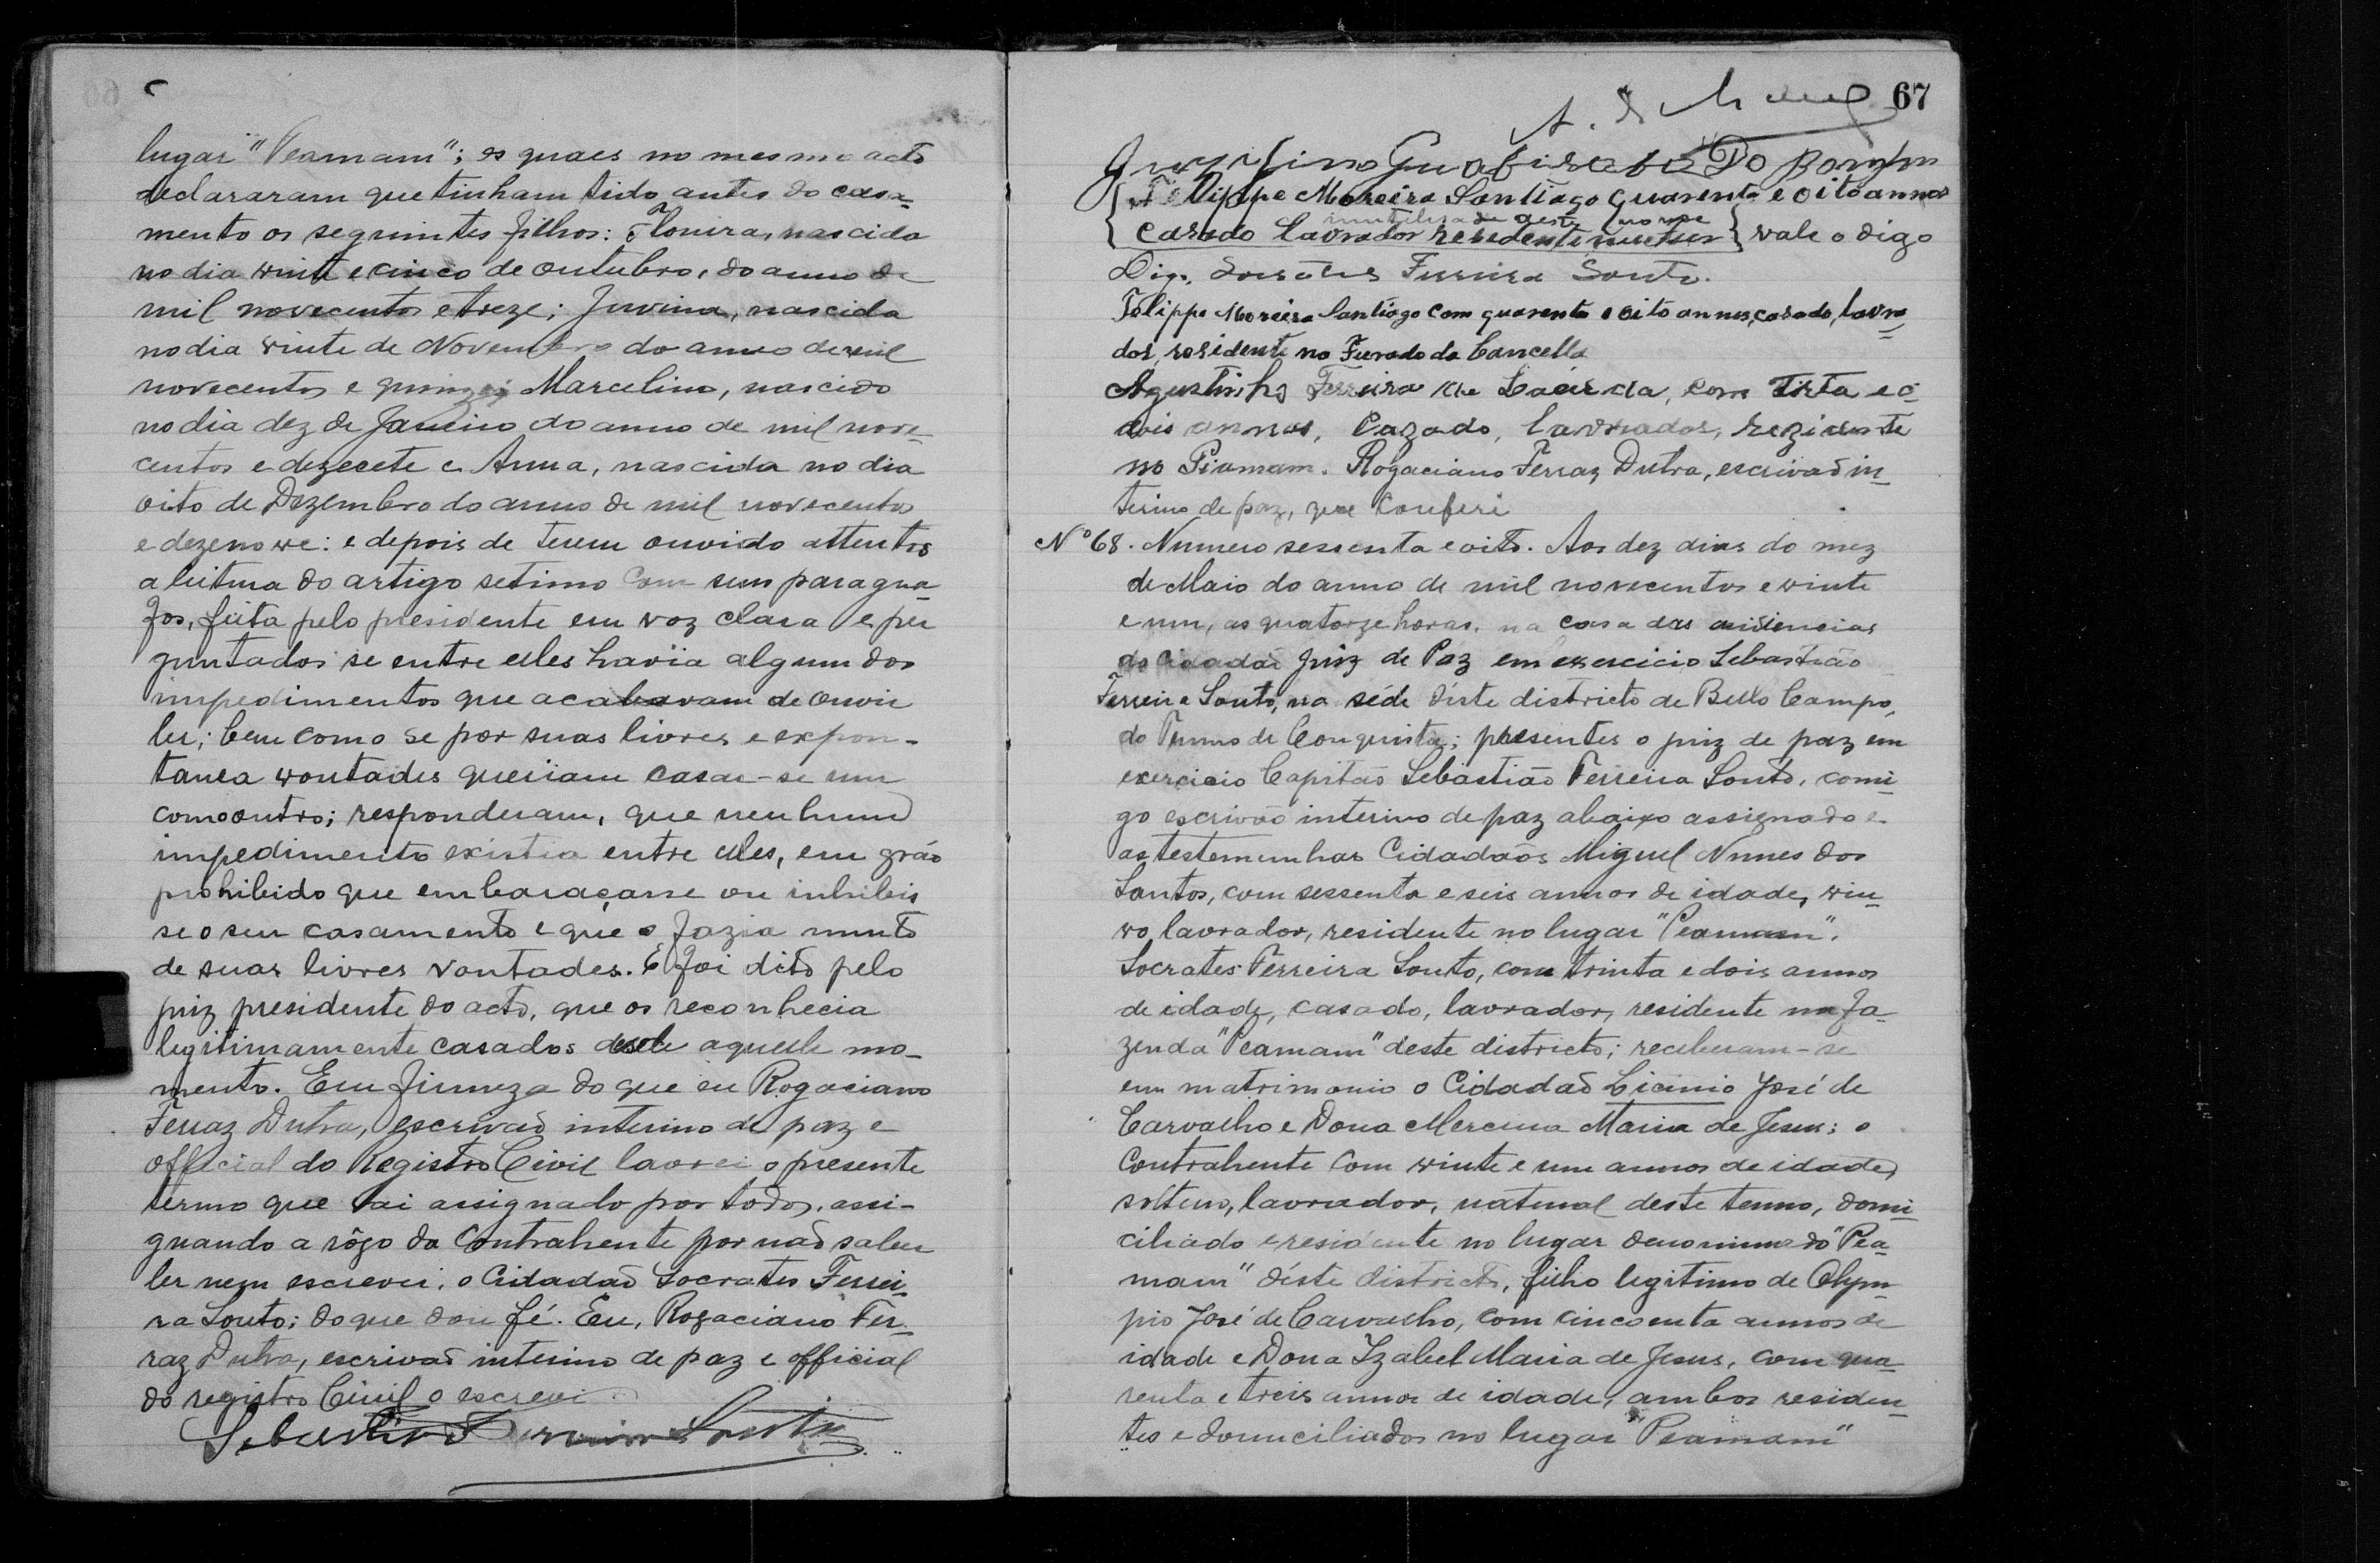 lugar "Peamam"; os quaes no mesmo acto
declararam que tinham tido antes do casa-
mento os seguintes filhos: Flonira, nascida
no dia winte e cinco de outubro, do anno de
mil novecentos e treze; Juvina, nascida
no dia winte de Novembro do anno de mil
novecentos e quinze; Marcelino, nascido
no dia dez de Janeiro do anno de mil nove-
centos e dezecete e Anna, nascida no dia
oito de Dezembro do anno de mil novecentos
e dezenowe: e depois de terem ouvido attentos
a leitura do artigo setimo com seus paragra-
fos, feita pelo presidente em voz clara e per
guntados se entre elles havia algum dos
impedimentos que acabavam de ouvir
ler; bem como se por suas livres e expon-
tanea wontades queriam casar-se um
com o outro; responderam, que nenhum
impedimento existia entre elles, em gráo
prohibido que embaraçasse ou inhibis
se o seu casamento e que o fazia muito
de suas livres vontades. E foi dito pelo
juiz presidente do acto, que os reconhecia
legitimamente casados desde aquelle mo-
mento. Em firmeza do que eu Rogaciano
Ferraz Dutra, escrivaõ interino de paz e
official do Registro Civil lavrei o presente
termo que vai assignado por todos, assi-
gnando a rôgo da Contrahente por naõ saber
ler nem escrever, o Cidadaõ Socrates Ferrei-
ra Souto; do que dou fé. Eu, Rogaciano Fer-
raz Dutra, escrivaõ interino de paz e official
do registro Civil o escrevi.
Sebastião Ferreira Souto
67
{ Felippe Moreira Santiago quarenta e oito annos
casado lavrador residente } vale o digo
Digo, Socrates Ferreira Souto.
Felippe Moreira Santiago com quarenta e oito annos, casado, lavra-
dor, residente no Furado da Cancella
Agustinho Ferreira de Lacerda, com trita e
dois annos, Cazado, lavrador, rezidente
no Piamam. Rogaciano Ferraz Dutra, escrivaõ in-
terino de paz, que conferi
Nº 68. Numero sessenta e oito. Aos dez dias do mez
de Maio do anno de mil novecentos e winte
e um, as quatorze horas, na casa das audiencias
do Cidadaõ Juiz de Paz em exercicio Sebastião
Ferreira Souto, na séde déste districto de Bello Campo,
do Termo de Conquista; presentes o juiz de paz em
exercicio Capitaõ Sebastiaõ Ferreira Souto, comi-
go escrivão interino de paz abaixo assignado e
as testemunhas Cidadaõs Miguel Nunes dos
Santos, com sessenta e seis annos de idade, wiu-
wo lavrador, residente no lugar "Peamam".
Socrates Ferreira Souto, com trinta e dois annos
de idade, casado, lavrador, residente na fa-
zenda "Peamam" deste districto; receberam-se
em matrimonio o Cidadaõ Licinio José de
Carvalho e Dona Mercina Maria de Jesus; o
Contrahente com winte e um annos de idade,
solteiro, lavrador, natural deste termo, domi-
ciliado e residente no lugar denominado "Pea-
mam" déste districto, filho legitimo de Olym-
pio José de Carvalho, com cincoenta annos de
idade e Dona Izabel Maria de Jesus, com qua-
renta e treis annos de idade, ambos residen-
tes e domiciliados no lugar "Peamam"